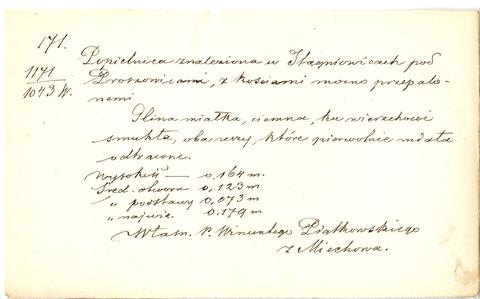 171.
1171
1043 W.
Popielnica znaleziona w Stogniowicach pod
Proszowicami, z kościami mocno przepalo-
nemi
Glina miałka, ciemna, ku wierzchowi
smukła, oba uszy, które pierwotnie miała
odtrącone.
Wysokość — 0,164 m.
Śred. otworu 0,123 m
„ podstawy 0,073 m
„ najwię. 0.179 m
Własn. P. Wincentego Piątkowskiego
z Miechowa.